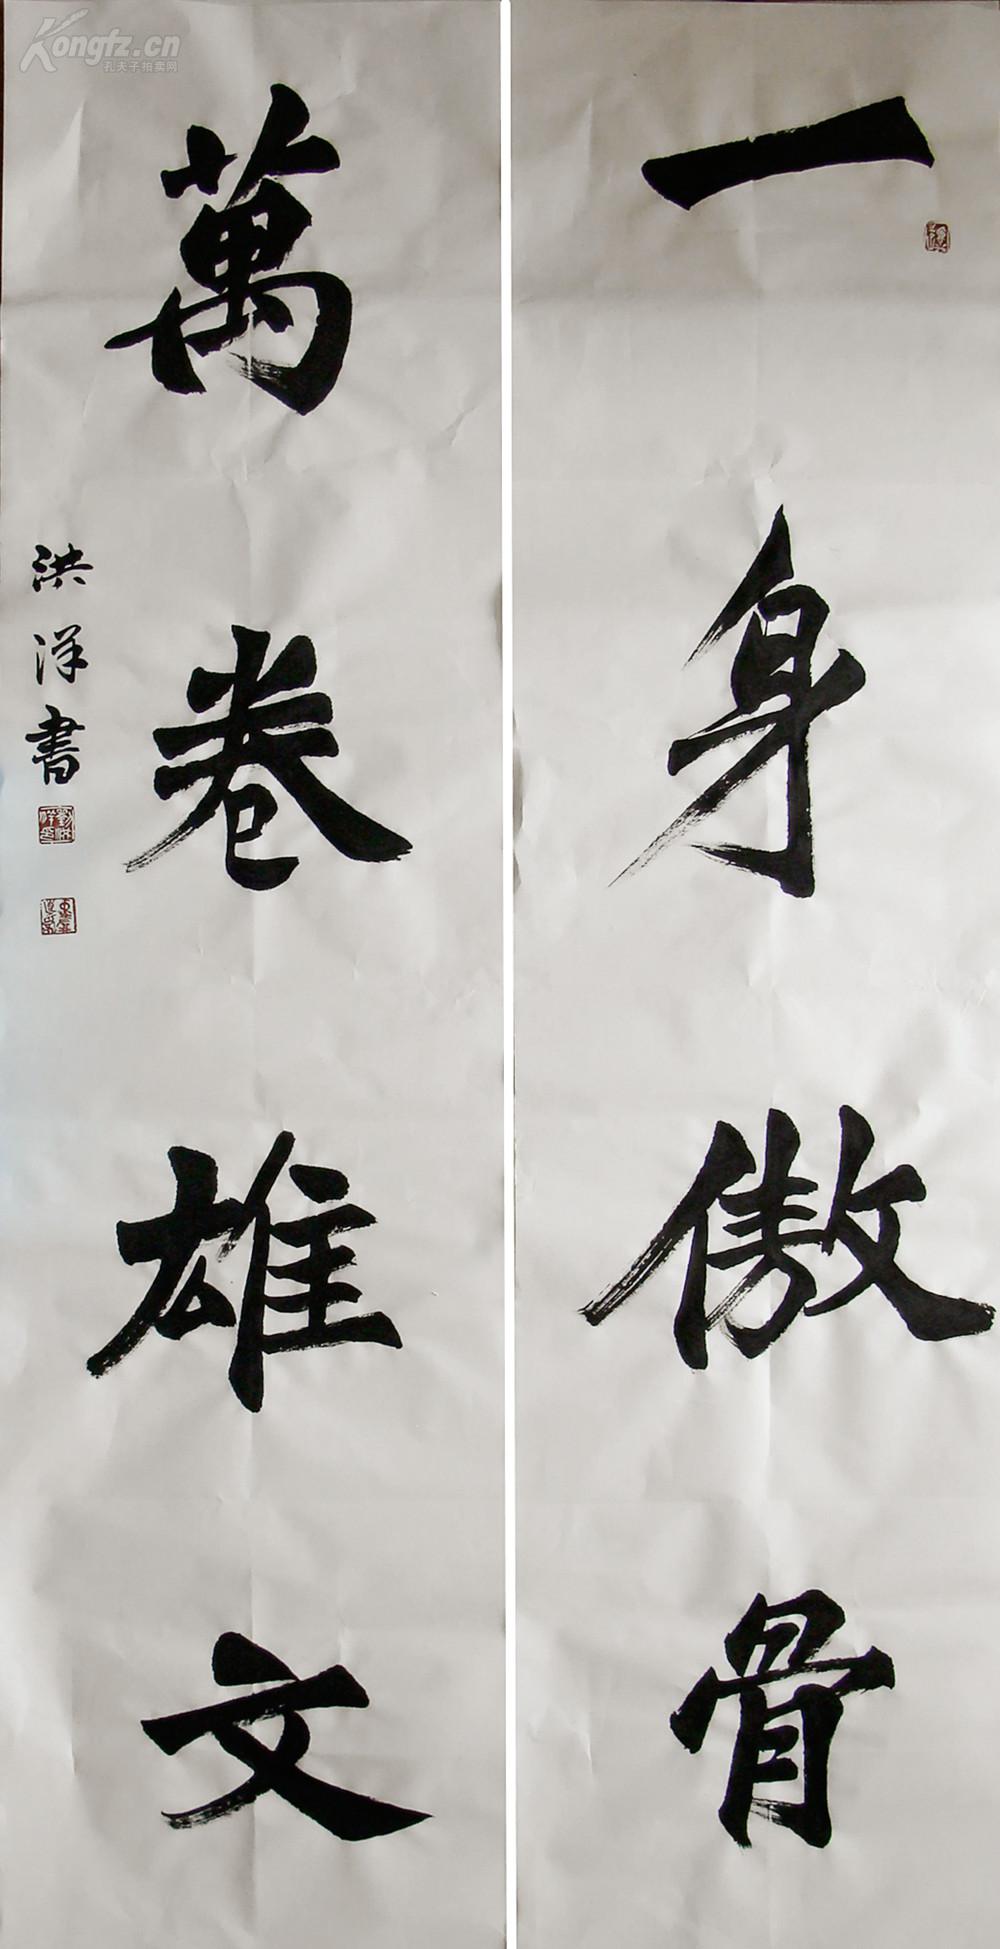 一身傲骨
萬卷雄文
洪洋書
Kongfz.cn
孔夫子拍卖网